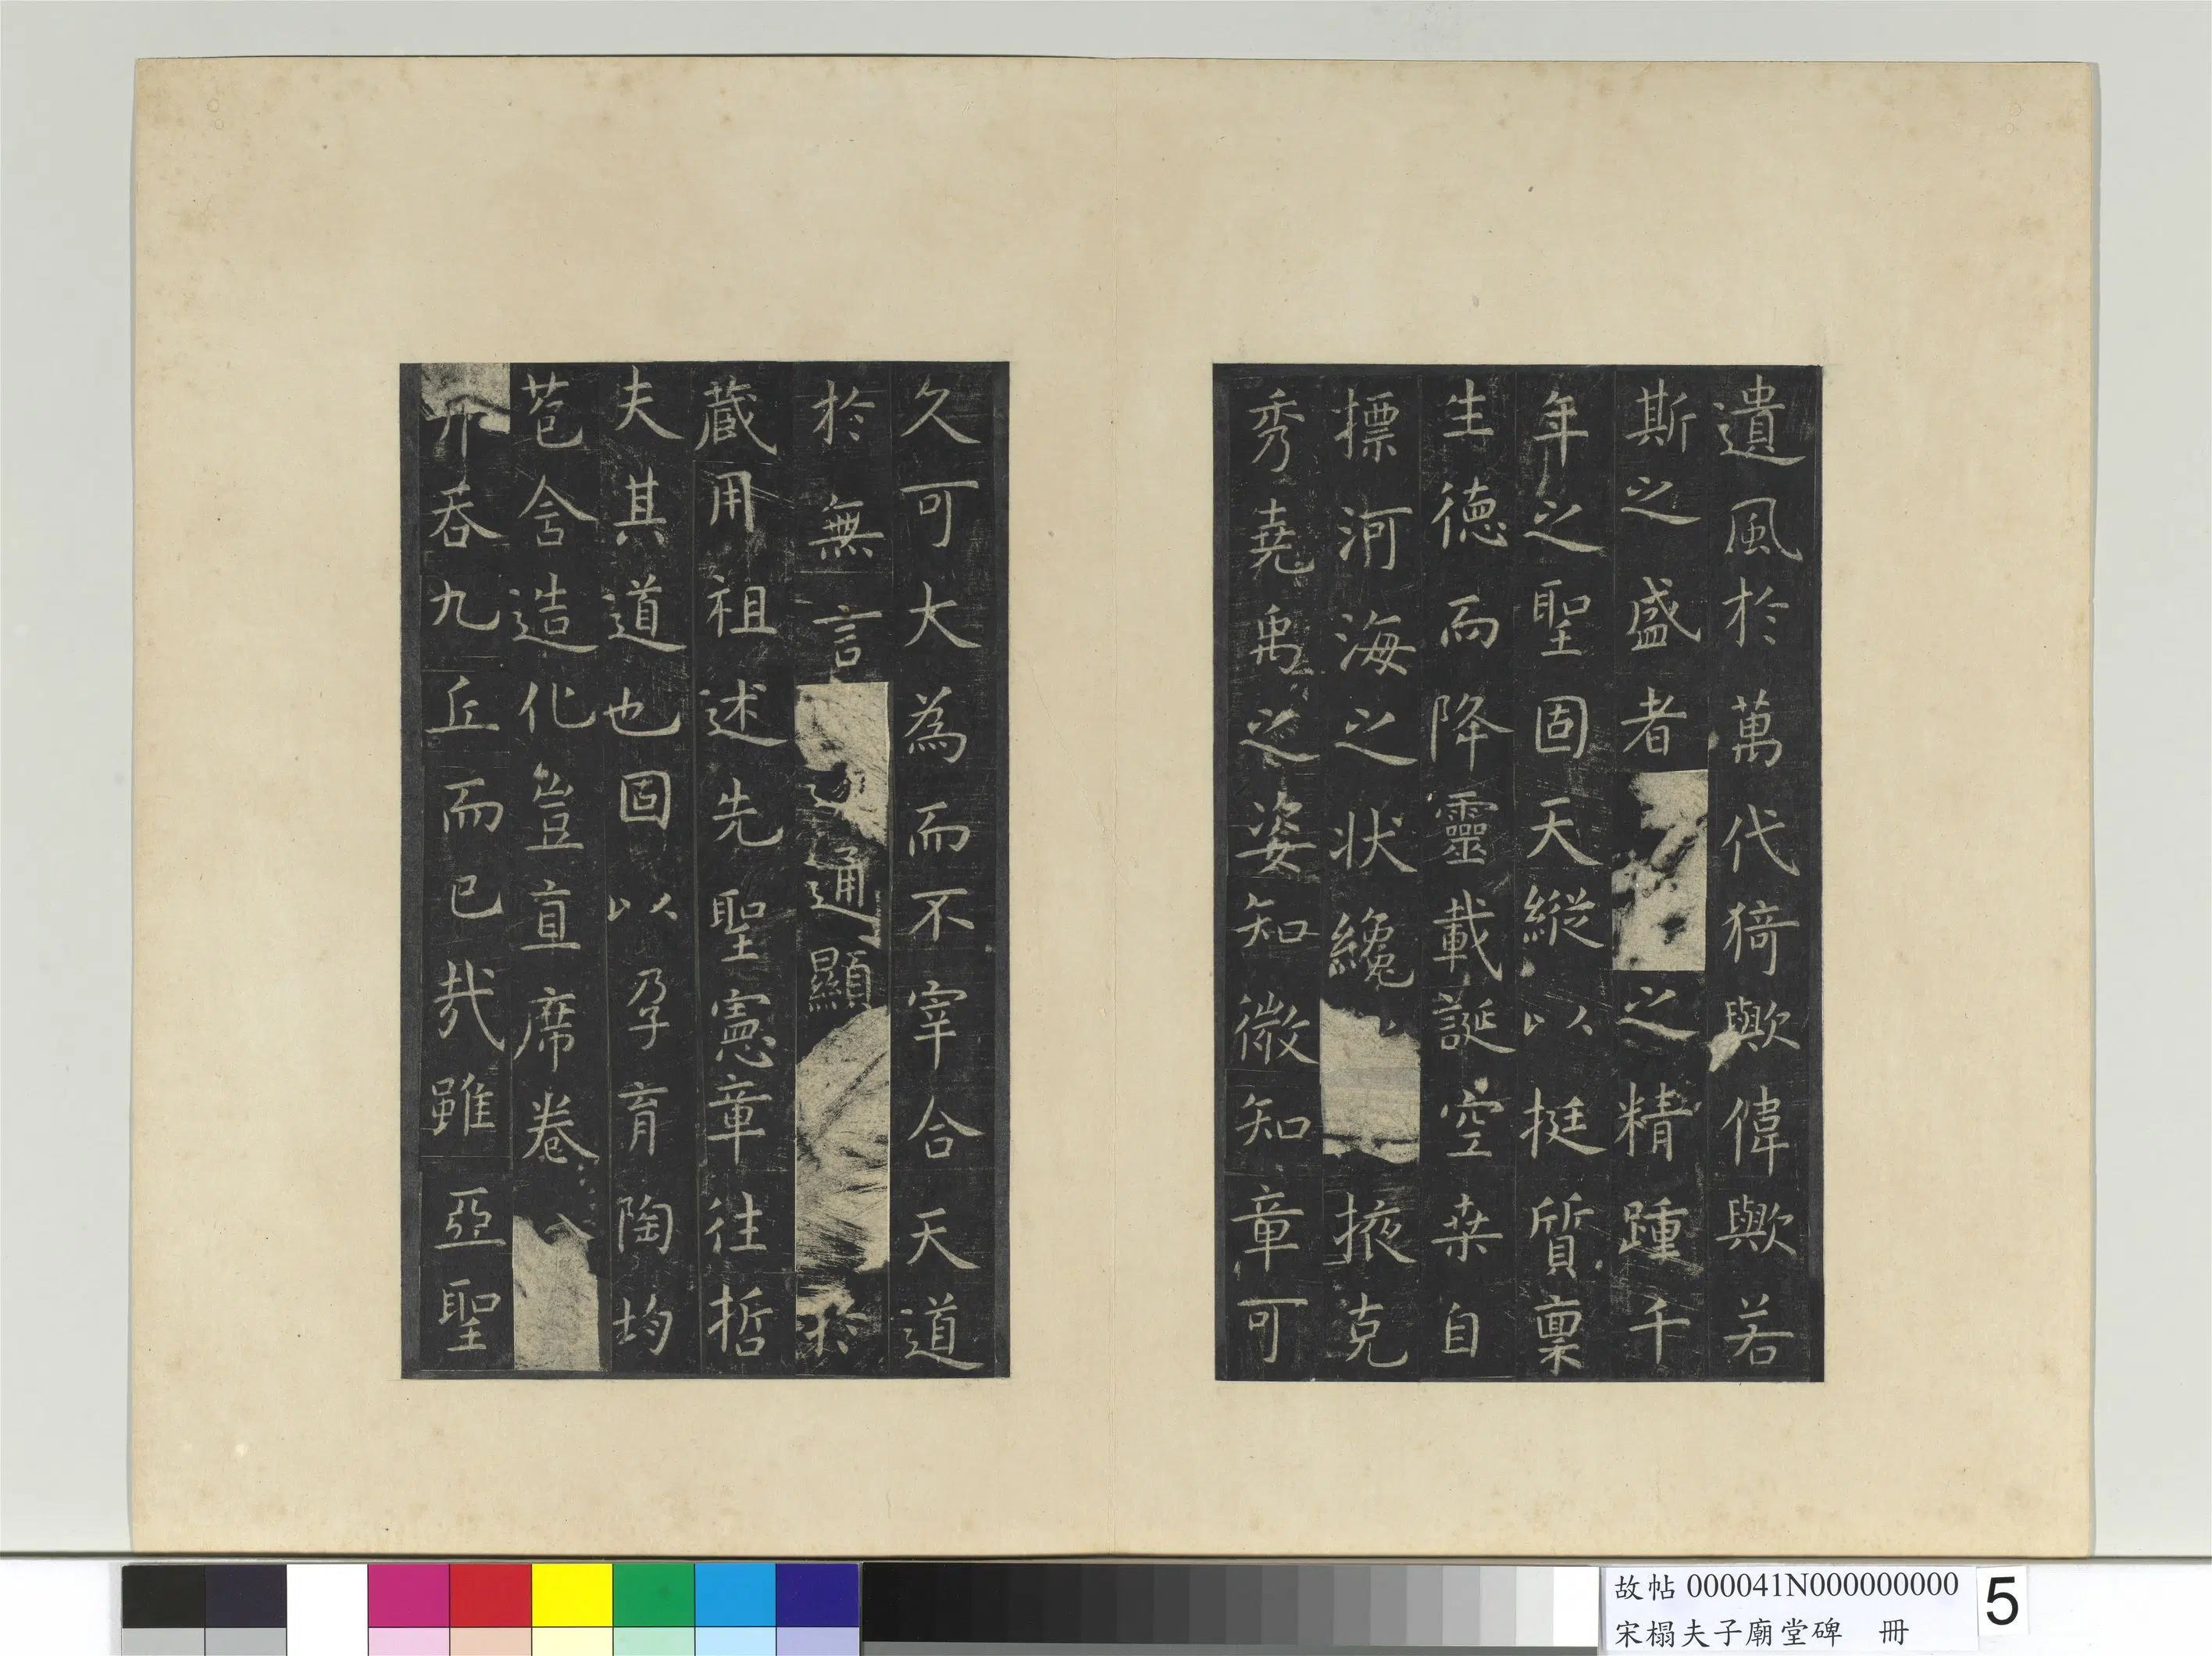 遺風於萬代猗歟偉歟若
斯之盛者之精踵千
年之聖固天縱以挺質稟
生德而降靈載誕空桑自
摽河海之狀纔掖克
秀堯禹之姿知微知章可
久可大為而不宰合天道
於無言通顯於
藏用祖述先聖憲章往哲
夫其道也固以孕育陶均
苞含造化豈直席卷
并吞九丘而已哉雖亞聖
故帖 000041N000000000
宋榻夫子廟堂碑 冊
5